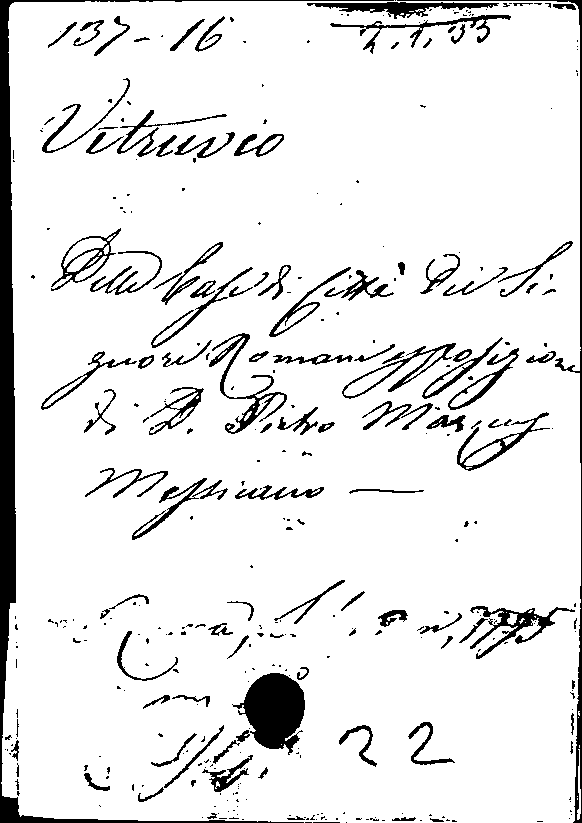 137-16 2.1.33
Vitruvio
Delle Case di Città dei Si-
gnori Romani esposizione
di D. Pietro Marquez
Messicano —
Roma, 1795
22